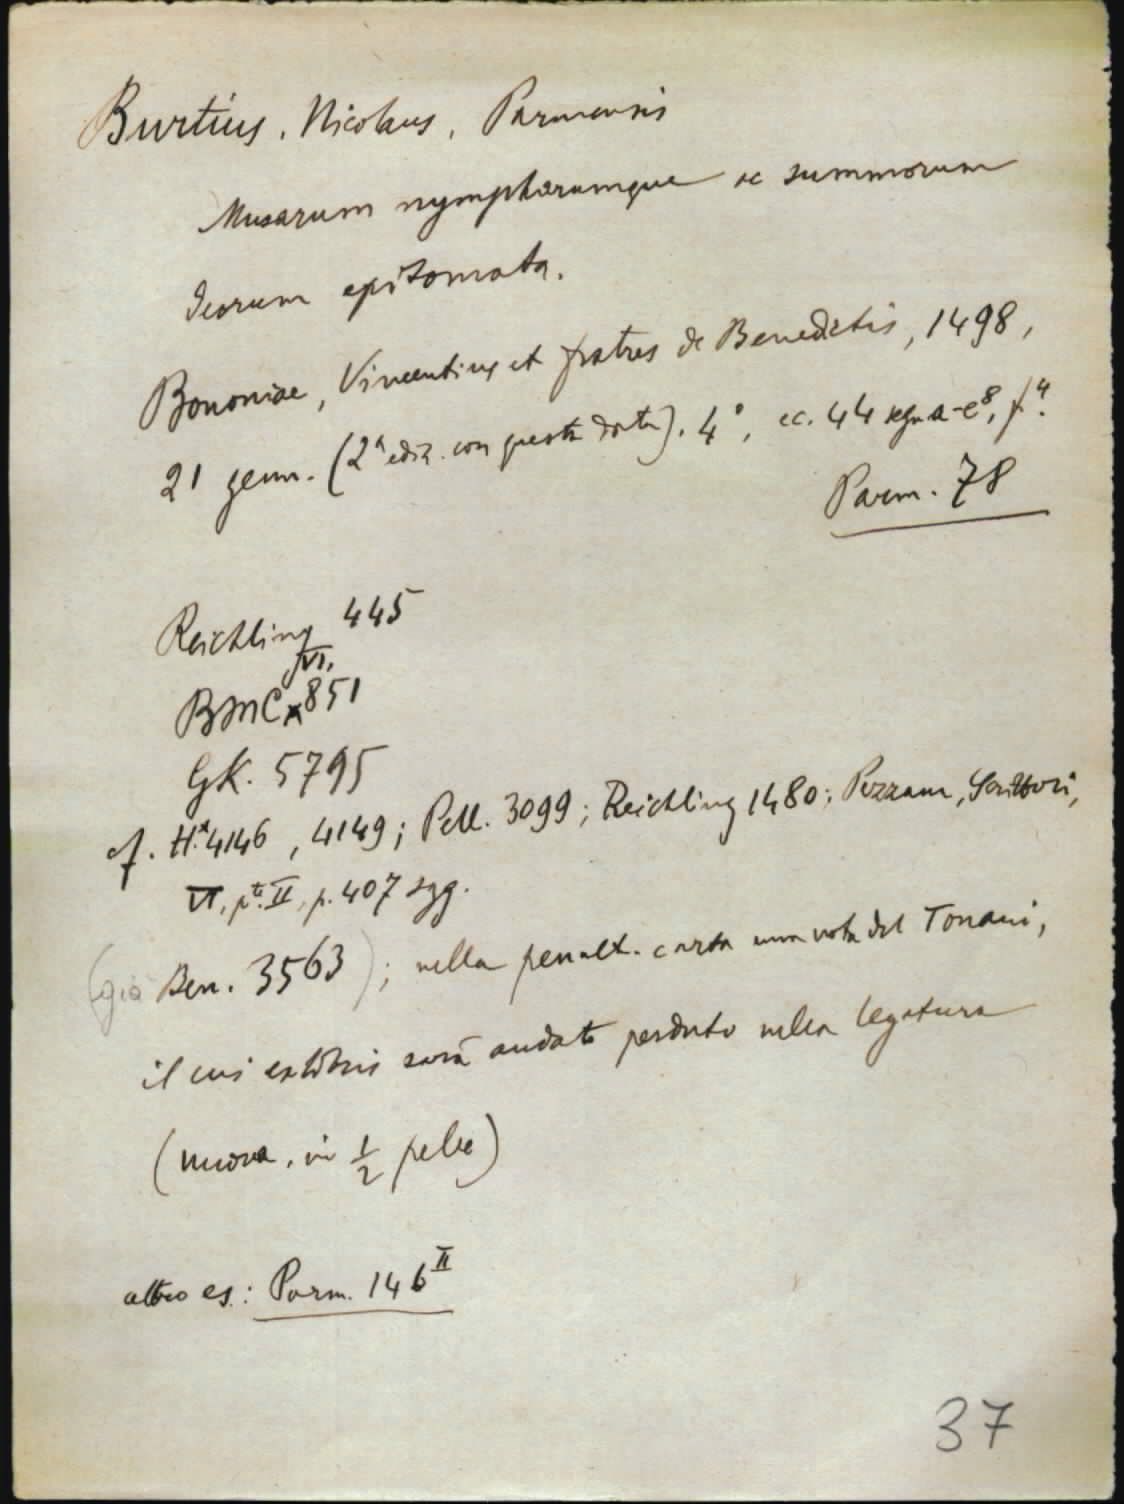 Burtius, Nicolaus, Parmensis
Musarum nympharumque ac summorum
deorum epitomata.
Bononiae, Vincentius et fratres de Benedictis, 1498,
21 genn. (2ª ediz. con questa data). 4°, cc. 44 segn. a-e⁸, f⁴.
Parm. 78
Reichling 445
BMC VI, 851
GK. 5795
cf. H.*4146, 4149; Pell. 3099; Reichling 1480; Pezzana, Scrittori,
VI, pte. II, p. 407 sgg.
(già Ben. 3563); nella penult. carta una nota del Tonani,
il cui exlibris sarà andato perduto nella legatura
(nuova, in ½ pelle)
altro es.: Parm. 146 II
37